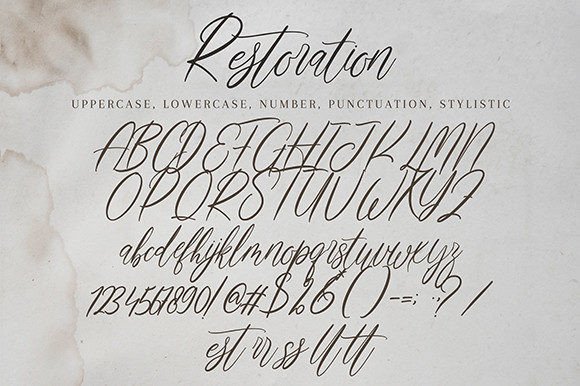 Restoration
UPPERCASE, LOWERCASE, NUMBER, PUNCTUATION, STYLISTIC
ABCDEFGHIJKLMN
OPQRSTUVWXYZ
abcdefghijklmnopqrstuvwxyz
1234567890! @#$%&*() -=; .,? /
est rr ss ll tt